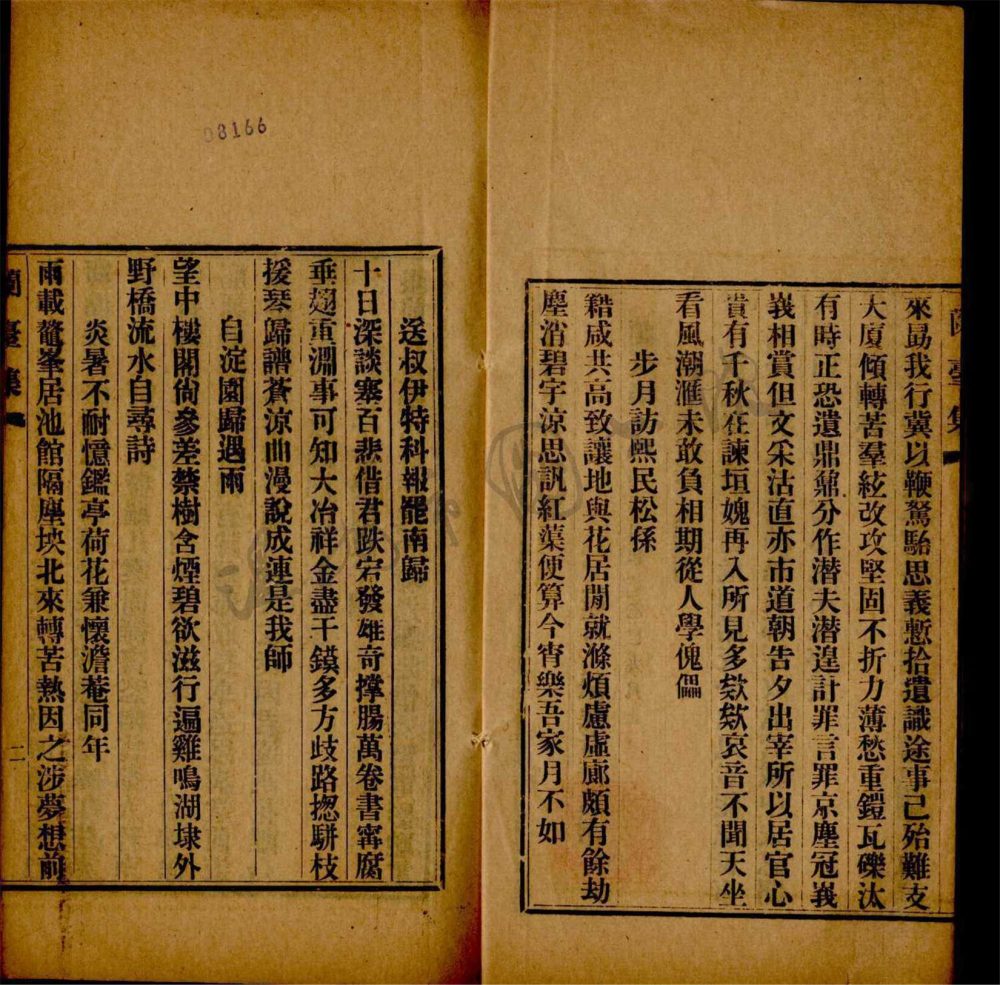 來勗我行冀以鞭駑駘思義慙拾遺識途事已殆難支
大厦傾轉苦羣絃改攻堅固不折力薄愁重鎧瓦礫汰
有時正恐遺鼎鼐分作潜夫潜遑計罪言罪京塵冠峩
峩相賞但文采沽直亦市道朝告夕出宰所以居官心
貴有千秋在諫垣媿再入所見多欸欸哀音不聞天坐
看風潮滙未敢負相期從人學傀儡
步月訪熙民松係
籍咸共高致讓地與花居閒就滌煩慮虛廊頗有餘劫
塵消碧宇涼思訊紅葉便算今宵樂吾家月不如
08166
送叔伊特科報罷南歸
十日深談塞百悲借君跌宕發雄奇撐腸萬卷書甯腐
垂翅重淵事可知大冶祥金盡干鏌多方歧路揔駢枝
援琴歸譜蒼涼曲漫說成連是我師
自淀園歸遇雨
望中樓閣尙參差禁樹含煙碧欲滋行遍雞鳴湖埭外
野橋流水自尋詩
炎暑不耐憶鑑亭荷花兼懷澹菴同年
兩載鼇峯居池館隔塵坱北來轉苦熱因之涉夢想前
蘭臺集
二